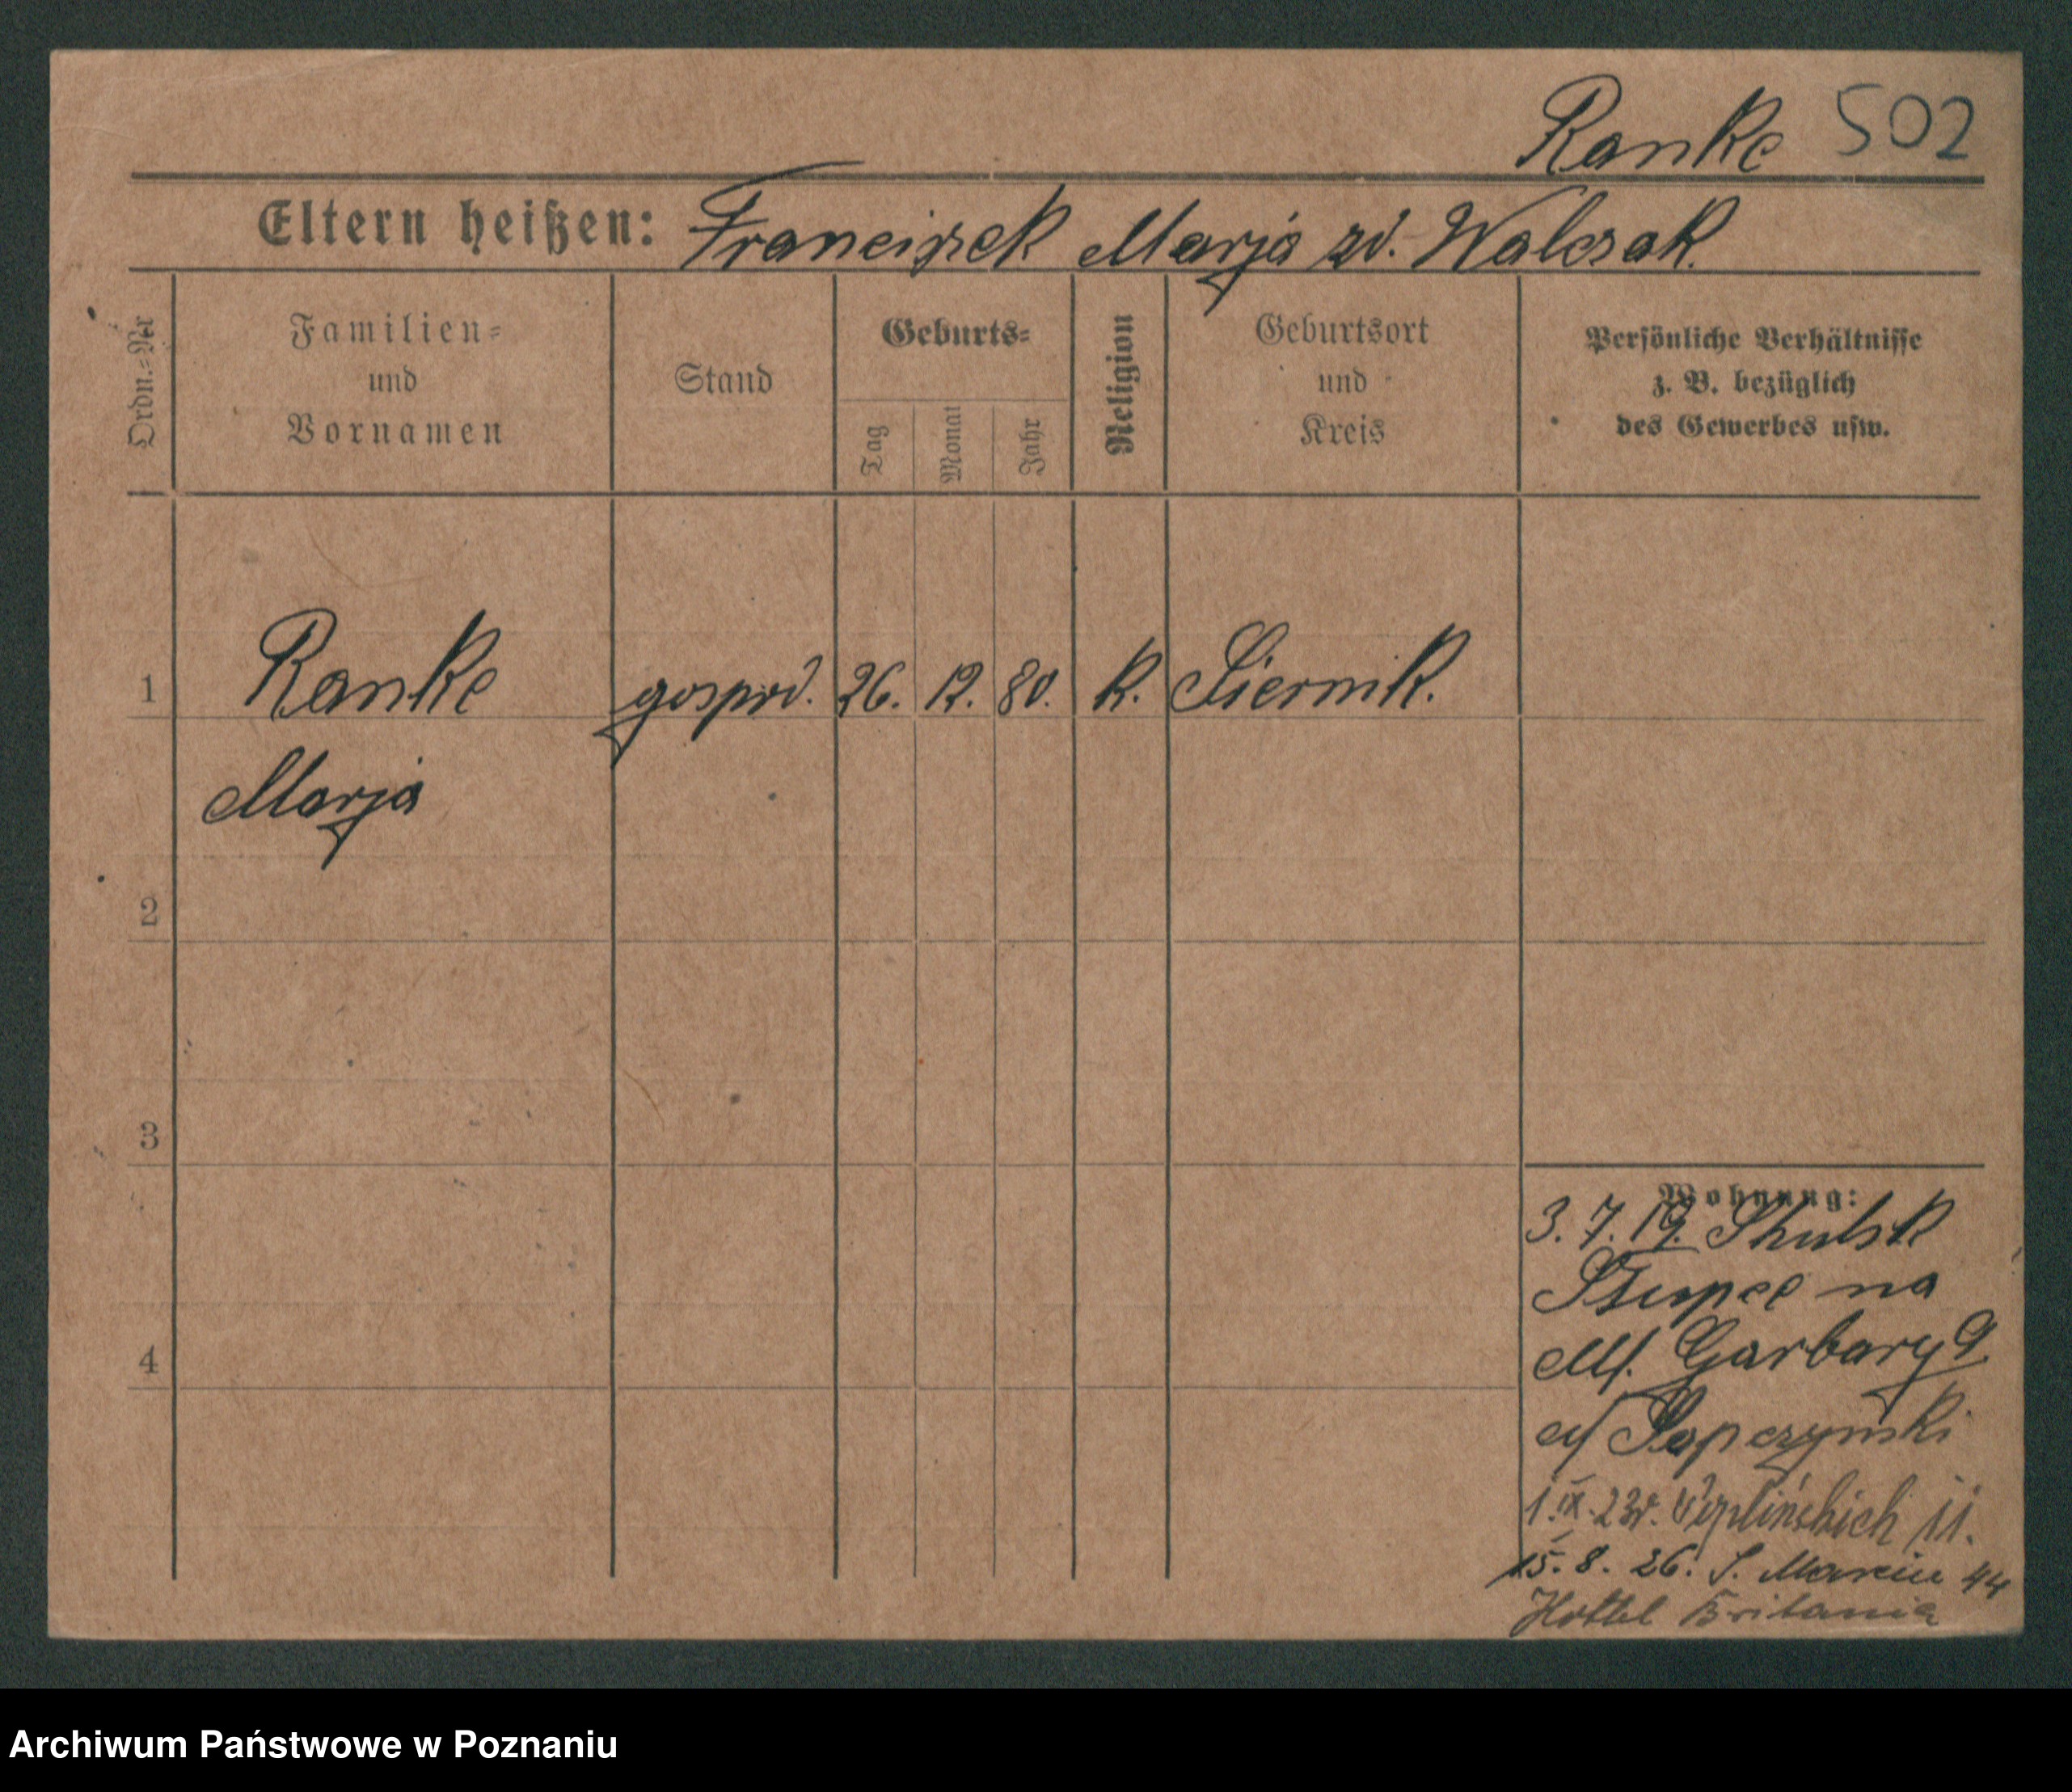 Ranke 502
Eltern heißen: Franciszek Marja zd. Walczak.
Ordn.=Nr
Familien=
und
Vornamen
Stand
Geburts=
Tag
Monat
Jahr
Religion
Geburtsort
und
Kreis
Persönliche Verhältnisse
z. B. bezüglich
des Gewerbes usw.
1 Ranke gospod. 26. 12. 80. k. Siernik.
Marja
2
3
4
Wohnung:
3. 7. 19.
na
Garbary 9
1. IX. 23r. 11.
15. 8. 26. S. Marcin 44
Hottel Britania
Archiwum Państwowe w Poznaniu